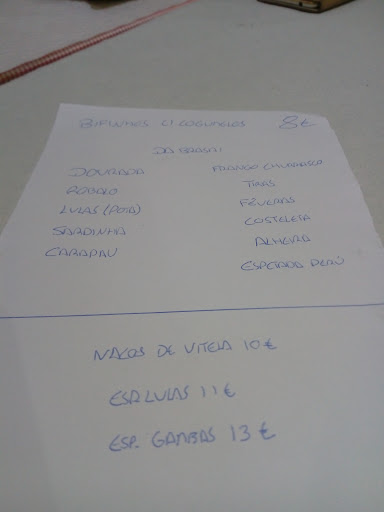 BIFINHOS C/ COGUMELOS 8€
DA BRASA!
DOURADA
ROBALO
LULAS (POTA)
SARDINHA
CARAPAU
FRANGO CHURRASCO
TIRAS
FÊVERAS
COSTELETA
ALHEIRA
ESPETADA PERÚ
NACOS DE VITELA 10€
ESP. LULAS 11€
ESP. GAMBAS 13€